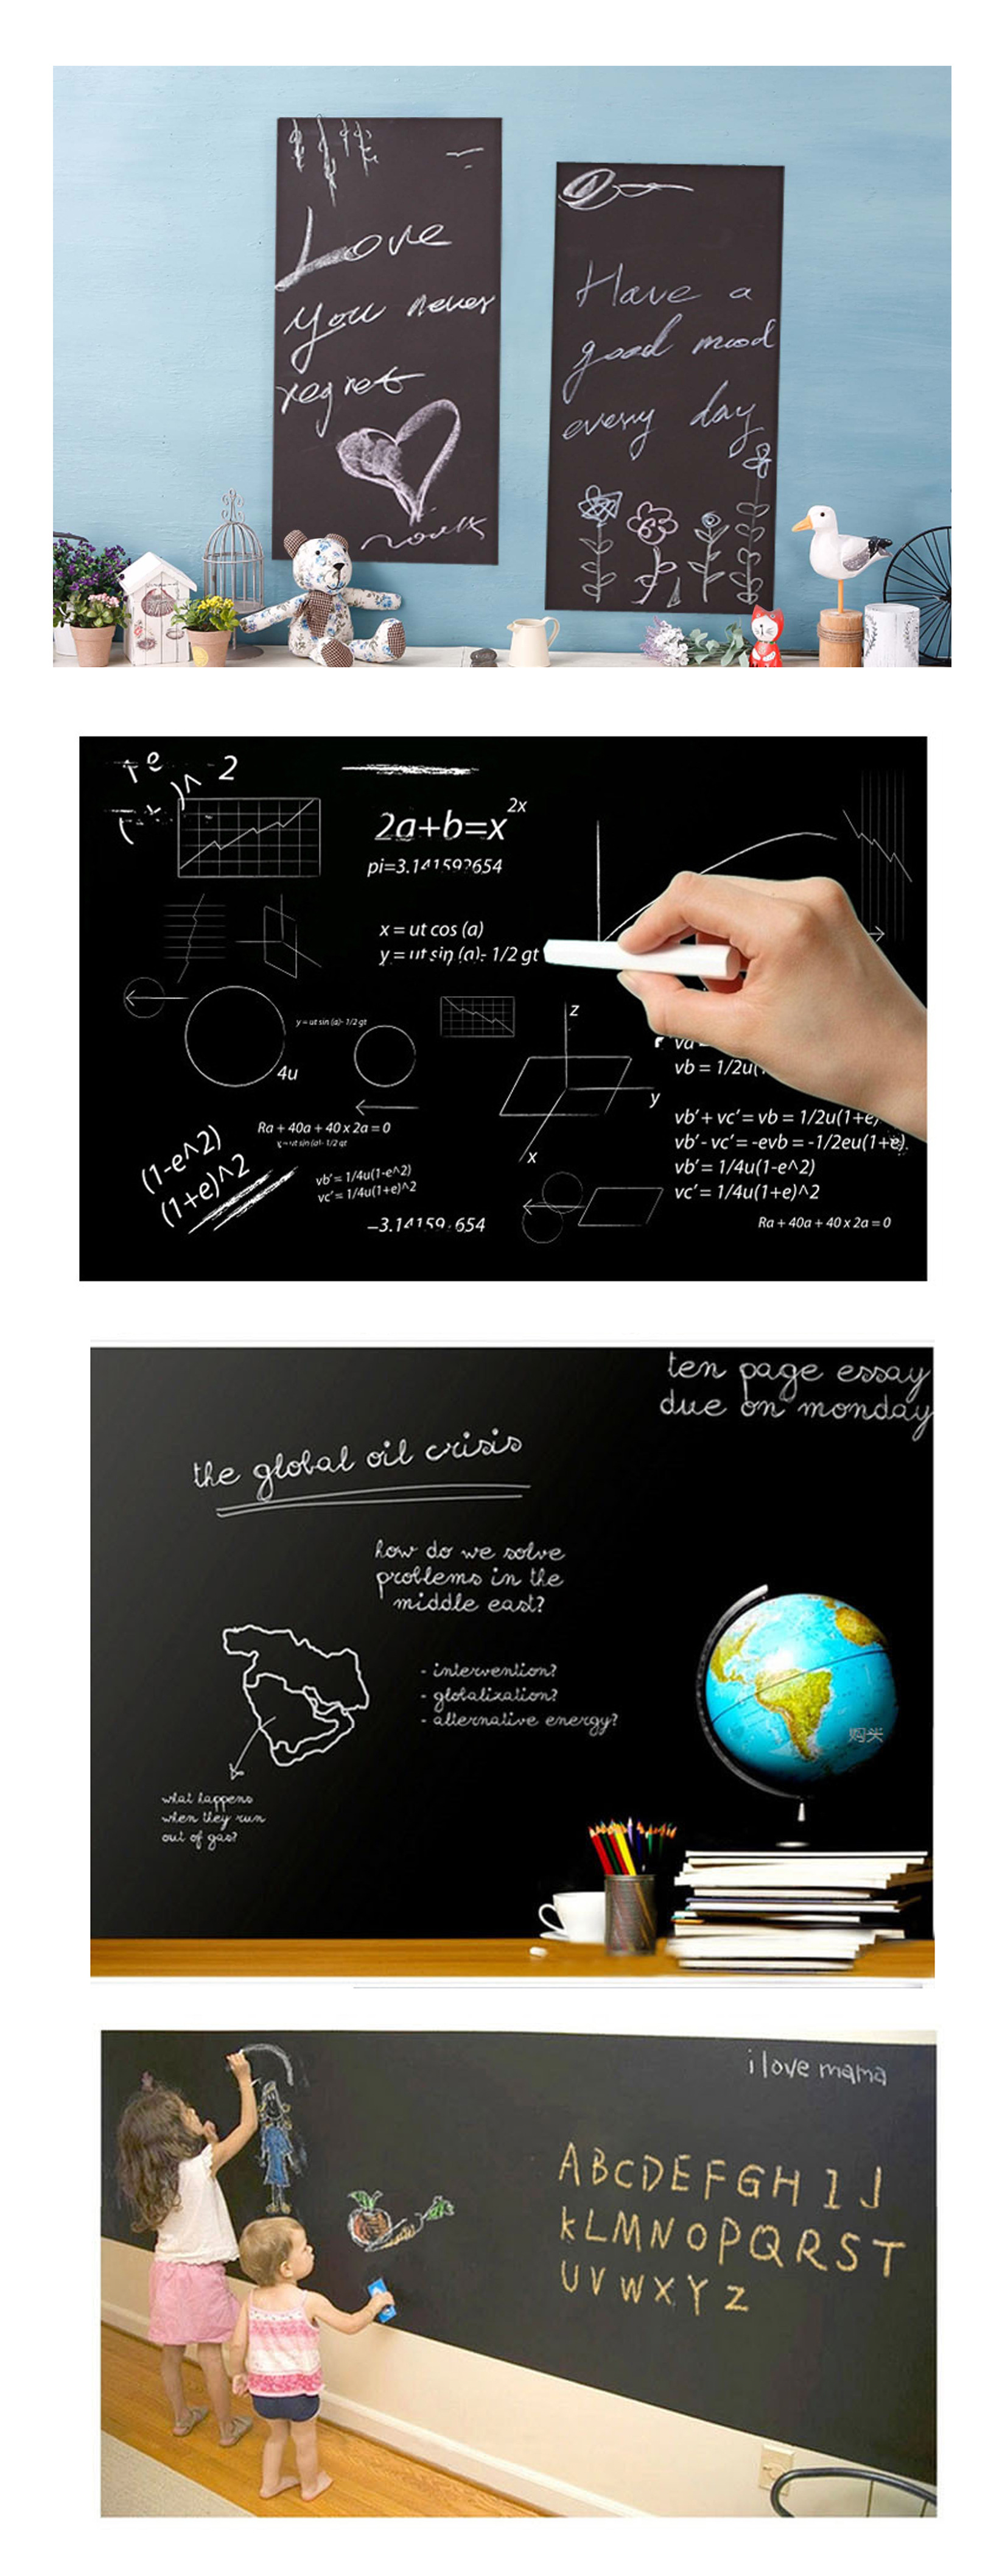 Love
you never
regret
Have a
good mood
every day
2
2a+b=x^2x
pi=3.141592654
x = ut cos (a)
y = ut sin (a)- 1/2 gt
y = ut sin (a)- 1/2 gt
4u
z
y
x
va =
vb = 1/2u(1
Ra + 40a + 40 x 2a = 0
y = ut sin (a)- 1/2 gt
vb' + vc' = vb = 1/2u(1+e)
vb' - vc' = -evb = -1/2eu(1+e)
vb' = 1/4u(1-e^2)
vc' = 1/4u(1+e)^2
(1-e^2)
(1+e)^2
vb' = 1/4u(1-e^2)
vc' = 1/4u(1+e)^2
–3.14159 654
Ra + 40a + 40 x 2a = 0
ten page essay
due on monday
the global oil crisis
how do we solve
problems in the
middle east?
- intervention?
- globalization?
- alternative energy?
购买
what happens
when they run
out of gas?
i love mama
ABCDEFGHIJ
kLMNOPQRST
UVWXYZ